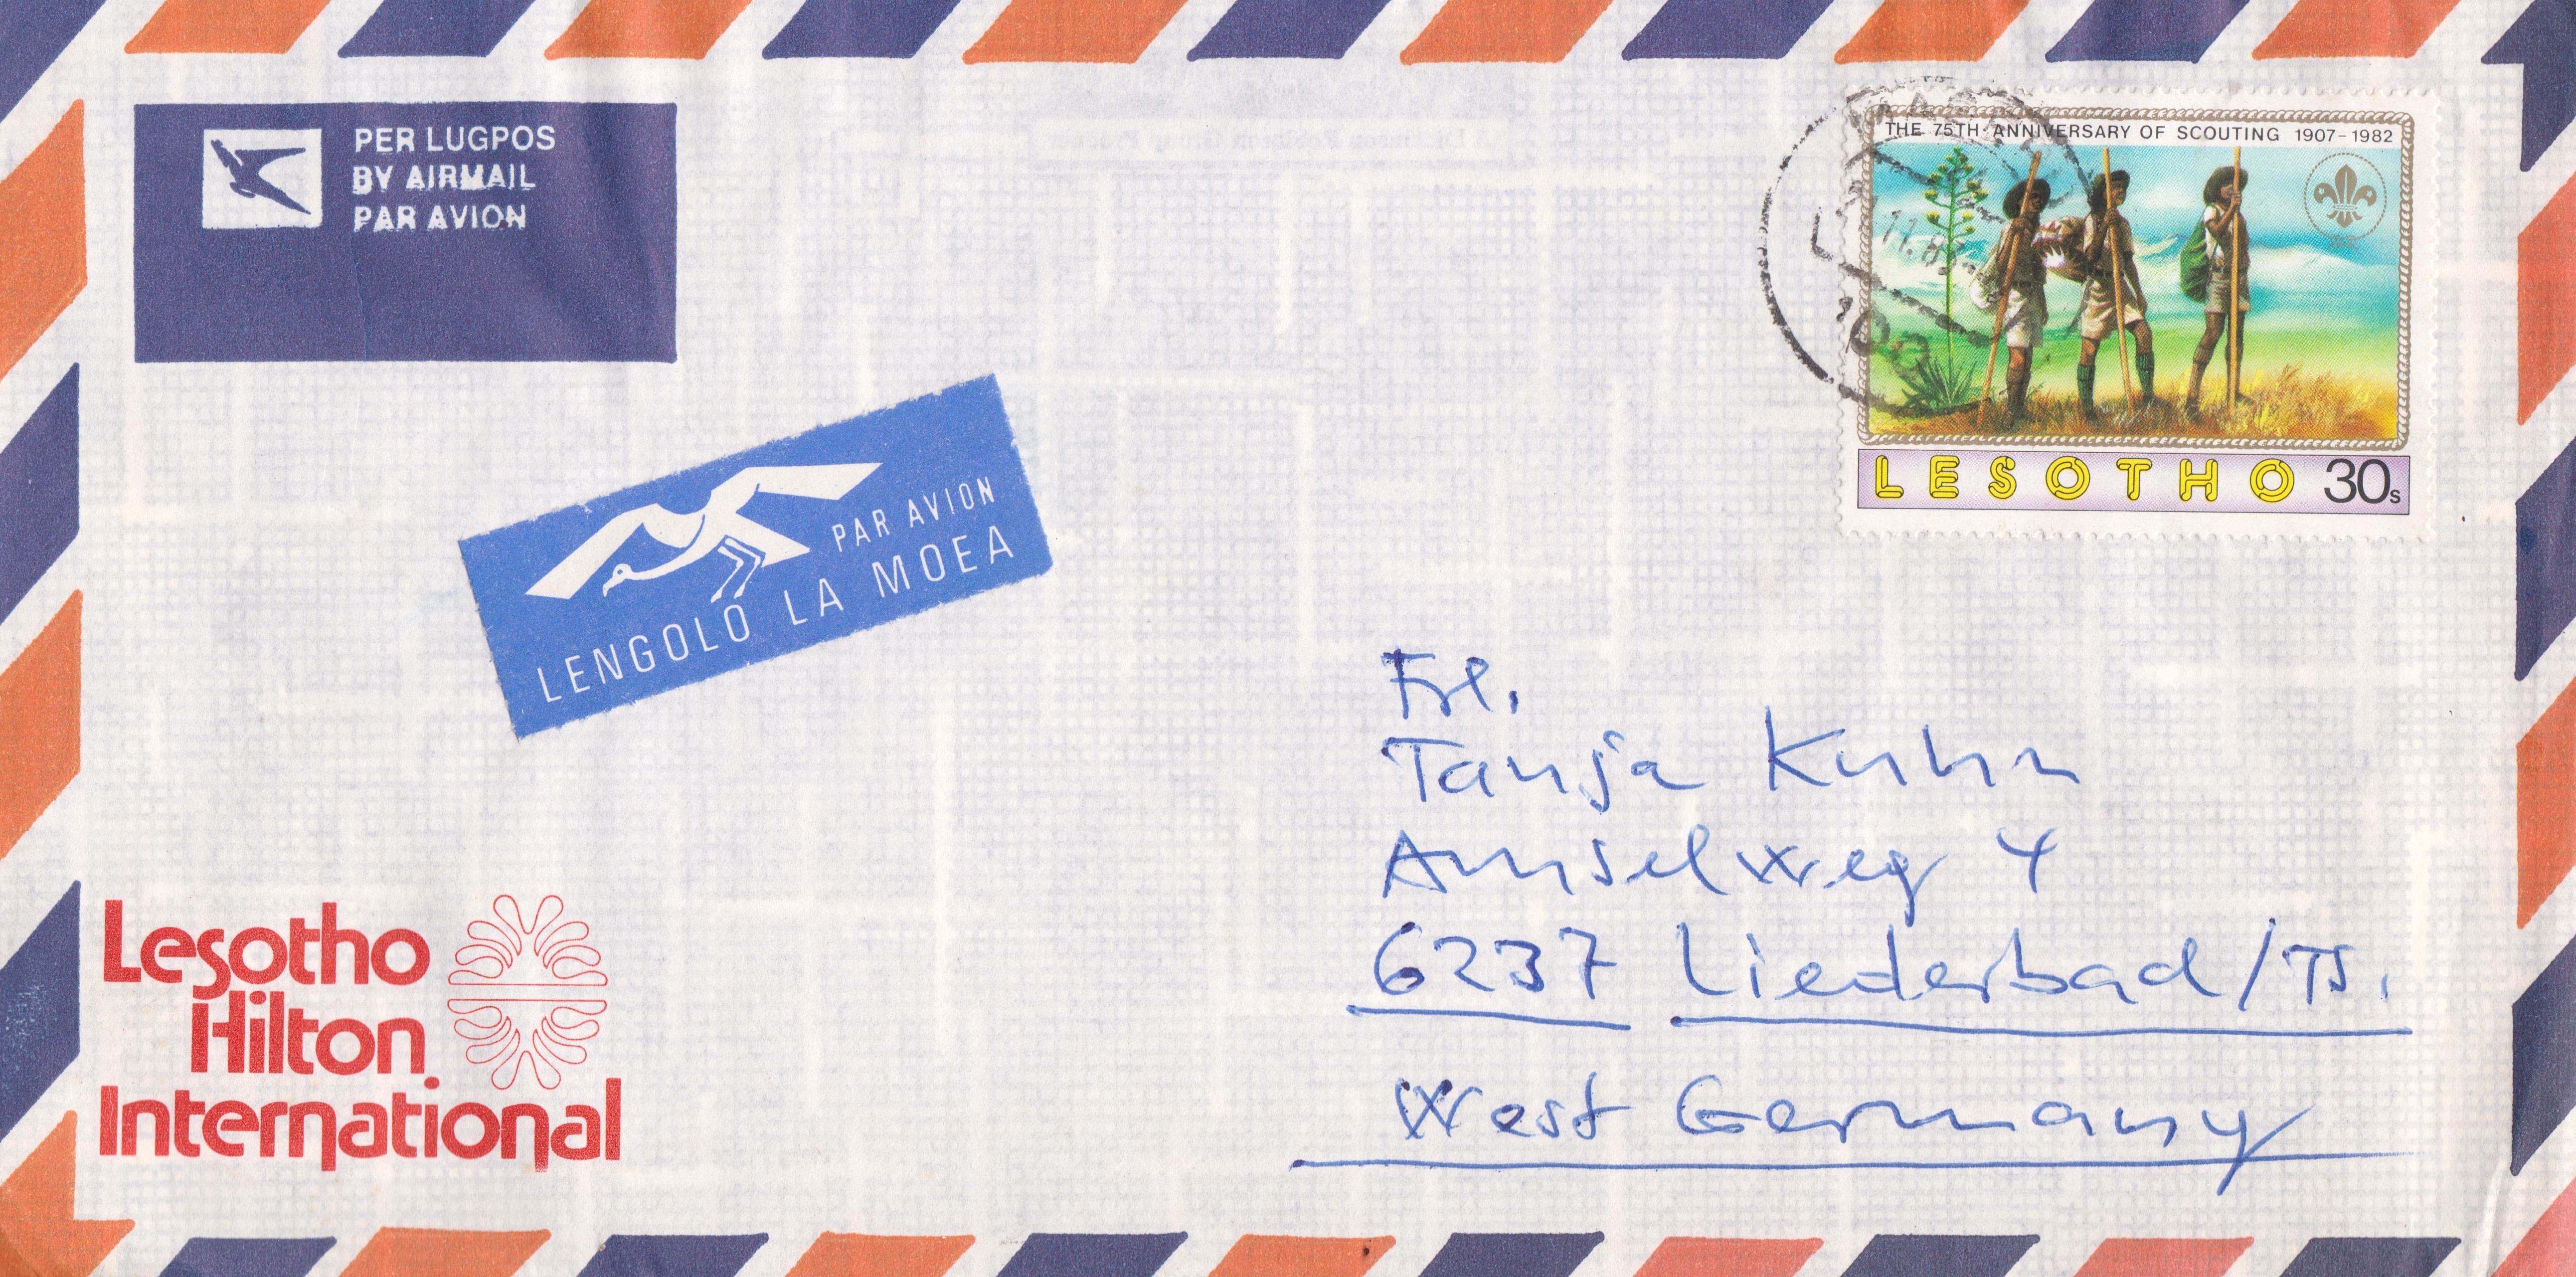 PER LUGPOS
BY AIRMAIL
PAR AVION
THE 75TH ANNIVERSARY OF SCOUTING 1907-1982
LESOTHO 30s
PAR AVION
LENGOLO LA MOEA
Frl.
Tanja Kuhn
Amselweg 4
6237 Liederbad/Ts.
West Germany
Lesotho
Hilton
International